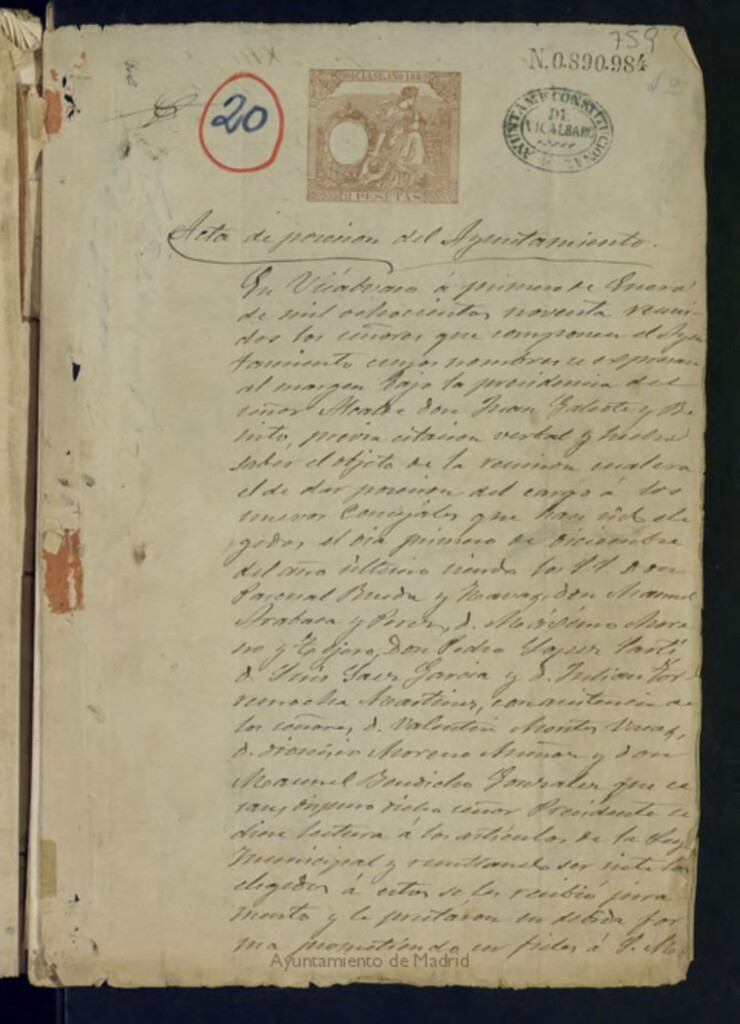 759
N.0.890.984
20
AYUNTAMTO CONSTITUCIONAL
DE
VICALBARO
PESETAS
Acta de posesion del Ayuntamiento.
En Vicalvaro á primero de Enero
de mil ochocientos noventa reuni-
dos los señores que componen el Ayun
tamiento cuyos nombres se espresan
al margen bajo la presidencia del
señor Alcalde don Juan y Be
nito, previa citacion verbal y hecho
saber el objeto de la reunion cual era
el de dar posesion del cargo á los
nuevos Concejales que han sido ele
gidos el dia primero de diciembre
del año último siendo los S.S. Don
Pascual y don Manuel
y Perez, d. Máximo More
no y Tejero, Don Pedro Lopez
d. Luis Saez Garcia y d. Julian Tor
remocha Martinez, con asistencia de
los señores d. Valentin Montes
d. Dionisio Moreno Muñoz y don
Manuel Bendicho Gonzalez que ce
san, dispuso dicho señor Presidente se
diera lectura á los artículos de la Ley
Municipal y resultando ser los
elegidos á estos se les recibió jura
mento y le prestaron en debida for
ma prometiendo ser fieles á S.M.
Ayuntamiento de Madrid